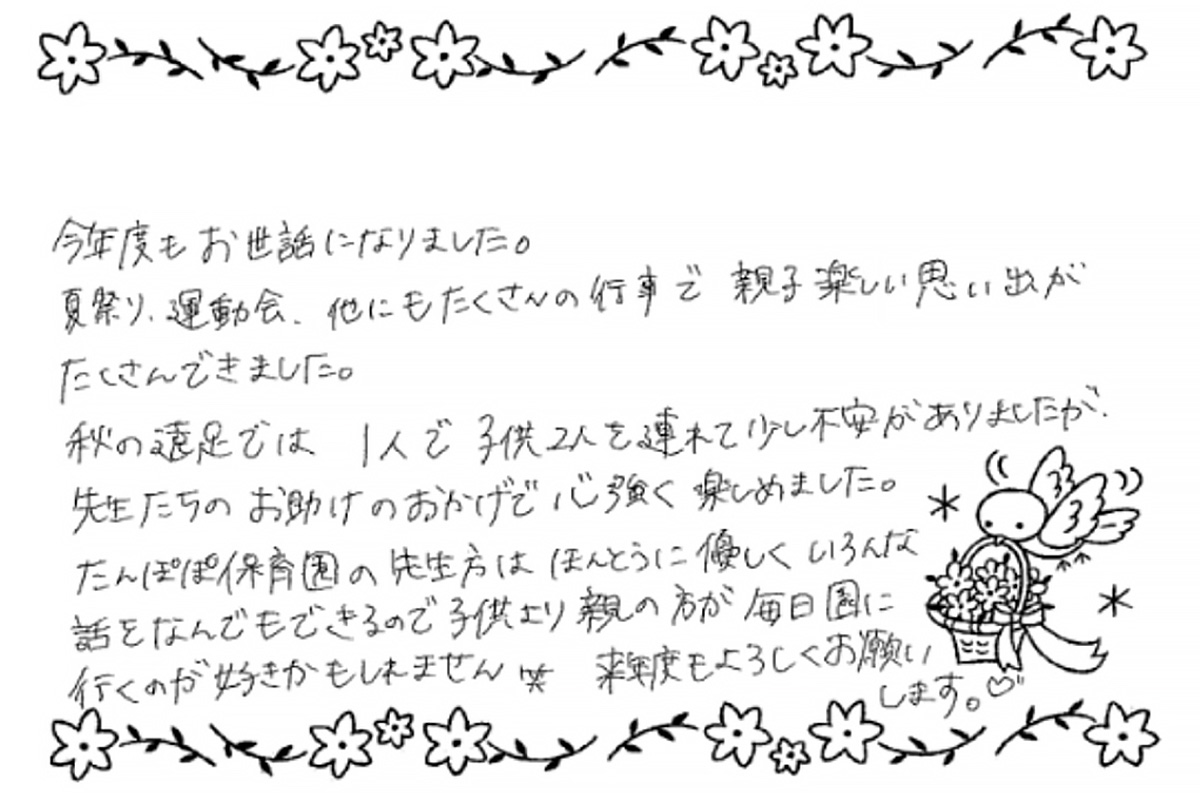 今年度もお世話になりました。
夏祭り、運動会、他にもたくさんの行事で親子楽しい思い出が
たくさんできました。
秋の遠足では 1人で子供2人を連れて少し不安がありましたが、
先生たちのお助けのおかげで心強く楽しめました。
たんぽぽ保育園の先生方はほんとうに優しくいろんな
話をなんでもできるので子供より親の方が毎日園に
行くのが好きかもしれません笑 来年度もよろしくお願い
します。♡